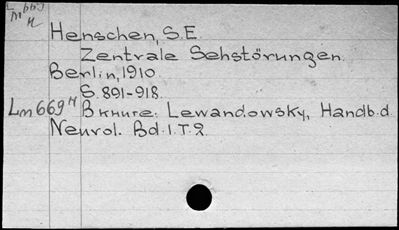 L m 669
н
Henschen, S.E.
Zentrale Sehstörungen.
Berlin, 1910.
S. 891-918.
Lm 669 н В книге: Lewandowsky, Handb. d.
Neurol. Bd. 1. T. 2.